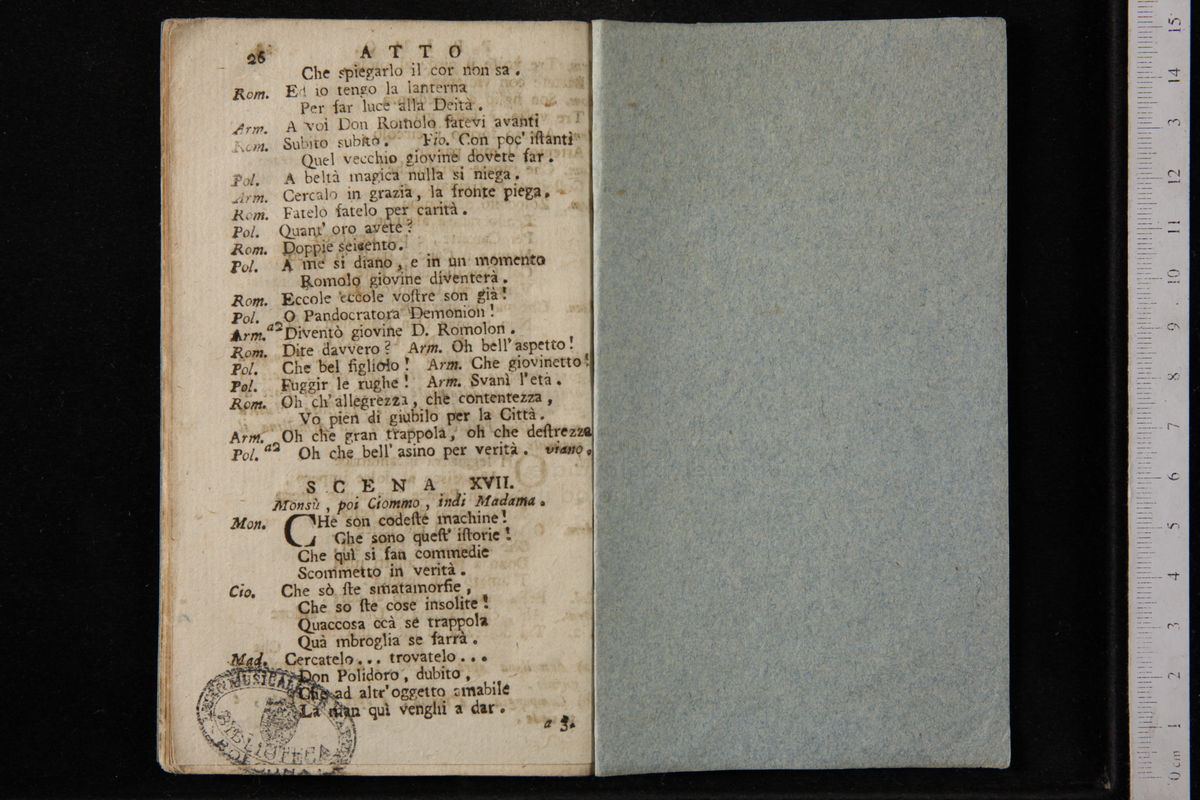 26 ATTO
Che spiegarlo il cor non sa.
Rom. Ed io tengo la lanterna
Per far luce alla Deità.
Arm. A voi Don Romolo fatevi avanti
Rom. Subito subito. Fio. Con poc' istanti
Quel vecchio giovine dovete far.
Pol. A beltà magica nulla si niega.
Arm. Cercalo in grazia, la fronte piega.
Rom. Fatelo fatelo per carità.
Pol. Quant' oro avete?
Rom. Doppie seicento.
Pol. A me si diano, e in un momento
Romolo giovine diventerà.
Rom. Eccole eccole vostre son già!
Pol. O Pandocratora Demonion!
Arm. a2 Diventò giovine D. Romolon.
Rom. Dite davvero? Arm. Oh bell'aspetto!
Pol. Che bel figliolo! Arm. Che giovinetto!
Pol. Fuggir le rughe! Arm. Svanì l'età.
Rom. Oh ch'allegrezza, che contentezza,
Vo pien di giubilo per la Città.
Arm. Oh che gran trappola, oh che destrezza
Pol. a2 Oh che bell' asino per verità. viano.
SCENA XVII.
Monsù, poi Ciommo, indi Madama.
Mon. CHe son codeste machine!
Che sono quest' istorie!
Che quì si fan commedie
Scommetto in verità.
Cio. Che sò ste smatamorfie,
Che so ste cose insolite!
Quaccosa ccà se trappola
Quà mbroglia se farrà.
Mad. Cercatelo... trovatelo...
Don Polidoro, dubito,
Che ad altr'oggetto amabile
La man quì venghi a dar.
a 3.
MUSICALE
BIBLIOTECA
0 cm 1 2 3 4 5 6 7 8 9 10 11 12 3 14 15